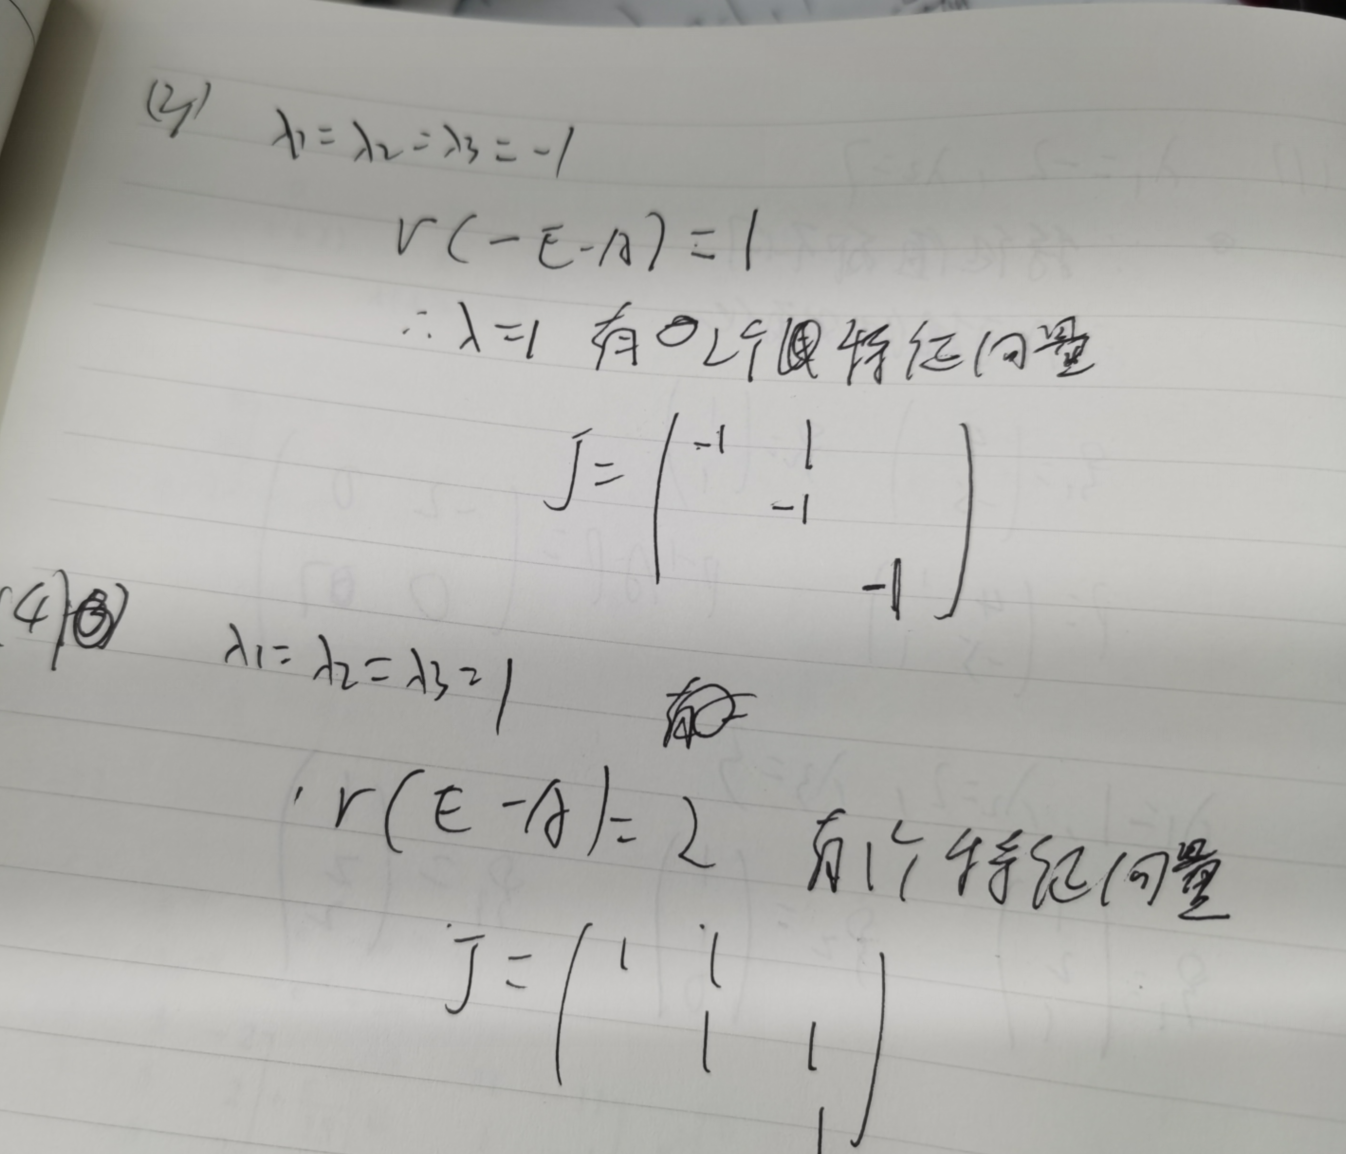 (2)
λ1=λ2=λ3=-1
r(-E-A)=1
∴λ=1 有2个特征向量
J= ( -1 1
-1
-1 )
(4)
λ1=λ2=λ3=1
r(E-A)=2 有1个特征向量
J= ( 1 1
1 1
1 )